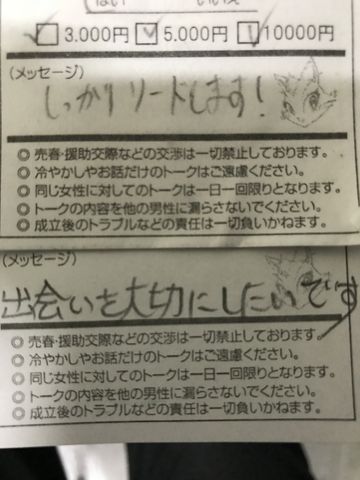 はい いいえ
3.000円 5.000円 10000円
(メッセージ)
しっかりリードします!
◎ 売春・援助交際などの交渉は一切禁止しております。
◎ 冷やかしやお話だけのトークはご遠慮ください。
◎ 同じ女性に対してのトークは一日一回限りとなります。
◎ トークの内容を他の男性に漏らさないでください。
◎ 成立後のトラブルなどの責任は一切負いかねます。
(メッセージ)
出会いを大切にしたいです
◎ 売春・援助交際などの交渉は一切禁止しております。
◎ 冷やかしやお話だけのトークはご遠慮ください。
◎ 同じ女性に対してのトークは一日一回限りとなります。
◎ トークの内容を他の男性に漏らさないでください。
◎ 成立後のトラブルなどの責任は一切負いかねます。